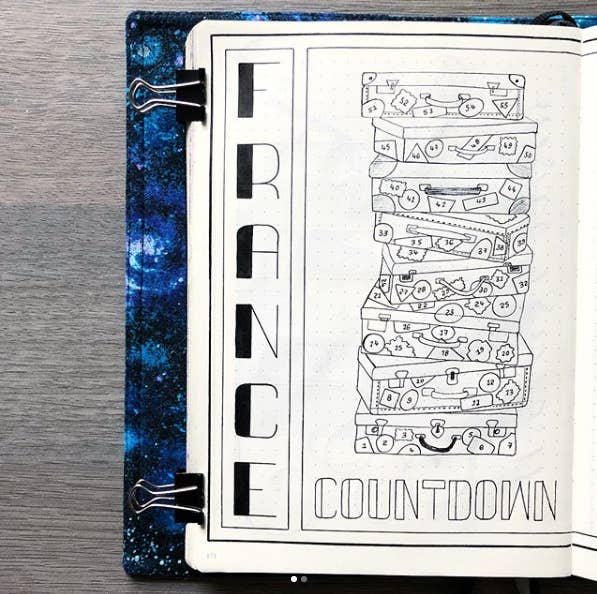 FRANCE
51 52 53 54 55
45 46 47 48 49 50
40 41 42 43 44
33 34 35 36 37 38 39
27 28 29 30 31 32
21 22 23 24 25
14 15 16 17 18 19 20
8 9 10 11 12 13
1 2 3 4 5 6 7
COUNTDOWN